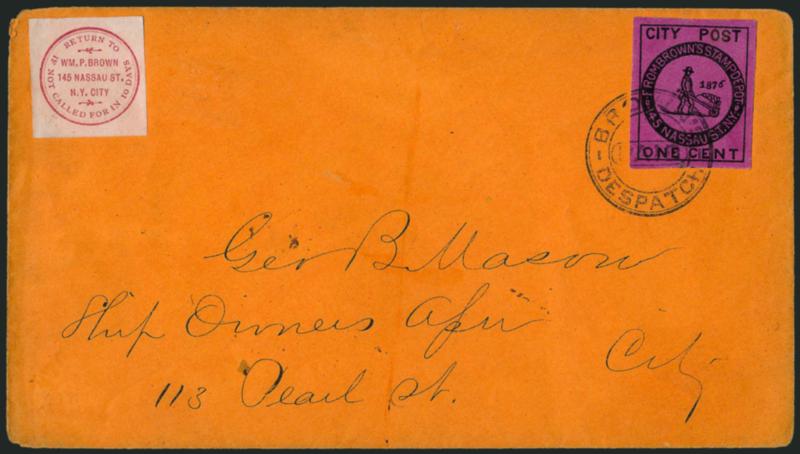 RETURN TO
WM. P. BROWN
145 NASSAU ST.
N.Y. CITY
IF NOT CALLED FOR IN 10 DAYS
CITY POST
FROM BROWN'S STAMP DEPOT
1876
145 NASSAU ST. N.Y.
ONE CENT
DESPATCH
Geo B Mason
Ship Owners
113 Pearl St.
City